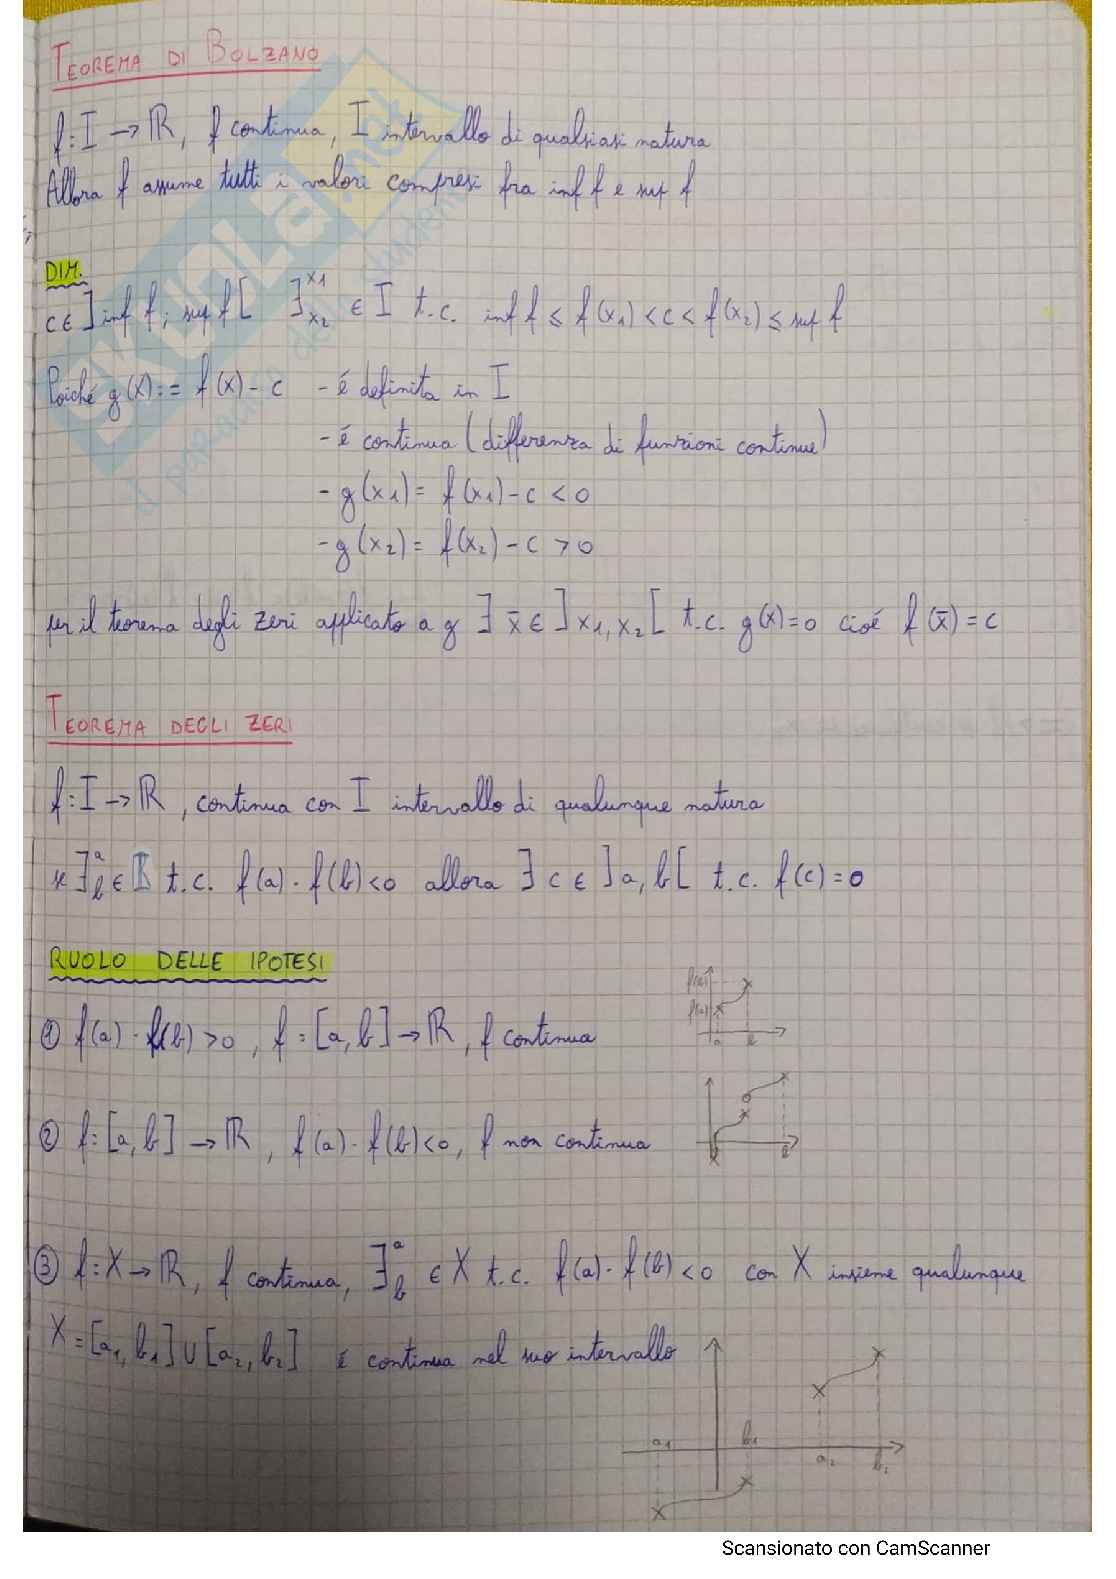 TEOREMA DI BOLZANO
f: I → ℝ, f continua, I intervallo di qualsiasi natura
Allora f assume tutti i valori compresi fra inf f e sup f
DIM.
c ∈ ] inf f ; sup f [ ∃ x1 x2 ∈ I t.c. inf f ≤ f(x1) < c < f(x2) ≤ sup f
Poiché g(x) := f(x) - c - é definita in I
- é continua (differenza di funzioni continue)
- g(x1) = f(x1) - c < 0
- g(x2) = f(x2) - c > 0
per il teorema degli zeri applicato a g ∃ x̄ ∈ ] x1, x2 [ t.c. g(x) = 0 cioé f(x̄) = c
TEOREMA DEGLI ZERI
f: I → ℝ, continua con I intervallo di qualunque natura
se ∃ a b ∈ I t.c. f(a) · f(b) < 0 allora ∃ c ∈ ] a, b [ t.c. f(c) = 0
RUOLO DELLE IPOTESI
① f(a) · f(b) > 0, f: [a, b] → ℝ, f continua
f(b)
f(a)
a b
② f: [a, b] → ℝ, f(a) · f(b) < 0, f non continua
③ f: X → ℝ, f continua, ∃ a b ∈ X t.c. f(a) · f(b) < 0 con X insieme qualunque
X = [a1, b1] ∪ [a2, b2] é continua nel suo intervallo
a1 b1 a2 b2
SKUOLA.net
il paradiso dello studente
Scansionato con CamScanner